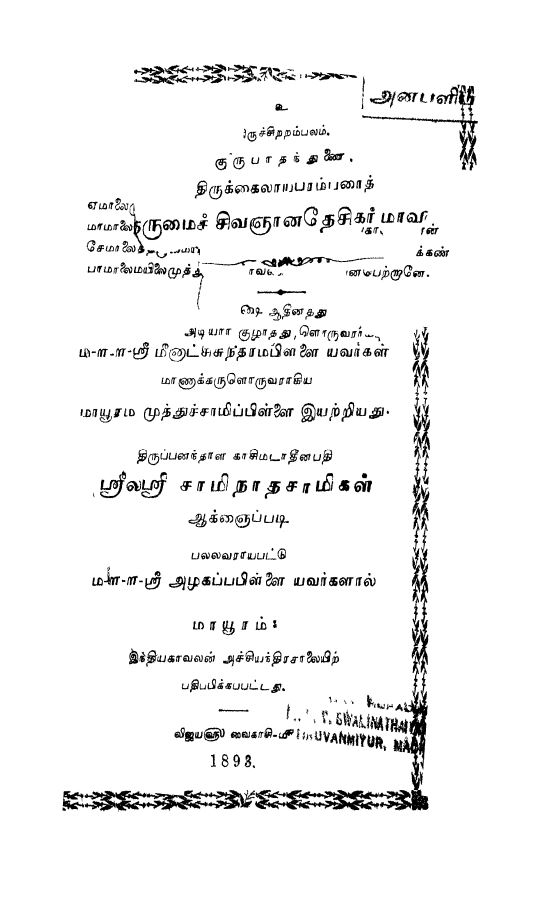 அன்பளிப்பு
உ
திருச்சிற்றம்பலம்.
குருபாதந்துணை.
திருக்கைலாயபரம்பரைத்
தருமைச் சிவஞானதேசிகர் மாலை
ஏமாலை
மாமாலை
சேமாலை
க்கண்
பாமாலைமயிலைமுத்து
னம்பெற்றானே.
ஷை ஆதீனத்து
அடியார் குழாத்து, ளொருவராகிய
ம-ள-ள-ஸ்ரீ மீனாட்சிசுந்தரம்பிள்ளை யவர்கள்
மாணாக்கருளொருவராகிய
மாயூரம் முத்துச்சாமிப்பிள்ளை இயற்றியது.
திருப்பனந்தாள் காசிமடாதீனபதி
ஸ்ரீலஸ்ரீ சாமிநாதசாமிகள்
ஆக்ஞைப்படி
பல்லவராயபட்டு
ம-ள-ள-ஸ்ரீ அழகப்பபிள்ளை யவர்களால்
மாயூரம்:
இந்தியகாவலன் அச்சியந்திரசாலையிற்
பதிப்பிக்கப்பட்டது.
விஜயஹு வைகாசி-மீ
1893.
SWAMINATHAIYER
TIRUVANMIYUR, MADRAS